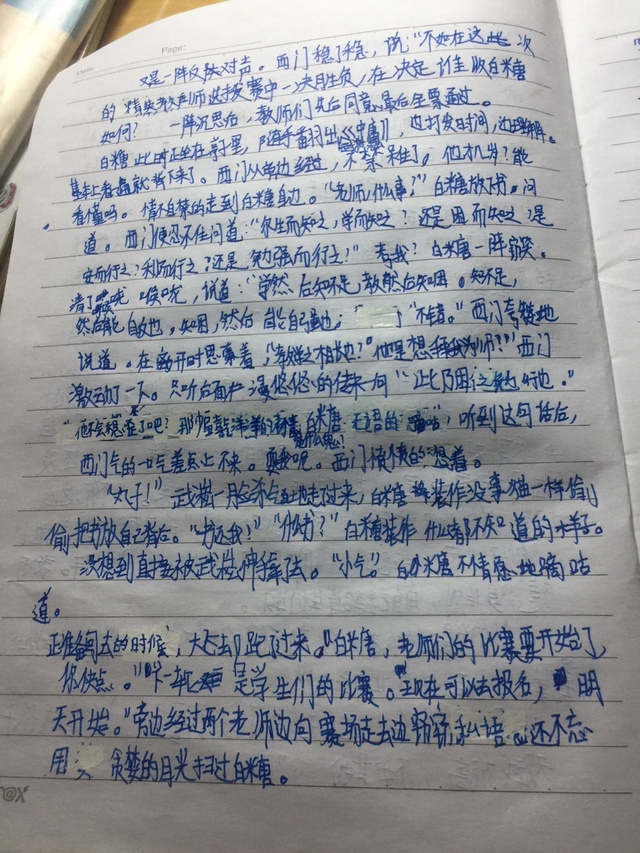 Page:
又是一阵反对声。西门稳了稳，说“不如在这此次
的声师选拔赛中一决胜负，在决定谁收白糖
如何？一阵沉思后，教师们先后同意最后全票通过。
白糖此时正坐在亭里，随手翻出《中庸》，也打发时间，边理解。
基本上看遍就背下来了。西门从旁边经过，不禁呆住了，他几岁？能
看懂吗。情不自禁的走到白糖身边。“老师，什么事？”白糖放下书，问
道。西门便忍不住问道：“你生而知之，学而知之？还是困而知之？是
安而行之？利而行之？还是勉强而行之！”考我？白糖一阵窃笑。
清了清喉咙，说道：“学然后知不足，教然后知困。知不足，
然后能自反也，知困，然后自强也；“不错。”西门夸赞地
说道。在离开时思索着，“教学相长也？他是想拜我为师？”西门
激动了一下。只听后面慢悠悠的传来一句“此乃困勉行也。”
白糖无语的，听到这句话后，
西门气的一口气差点上不来。西门愤愤的想着。
“丸子！”武崧一脸杀气地走过来，白糖装作没事猫一样偷
偷把书放自己背后。“书还我！”“什么书？”白糖装作什么都不知道的样子。
没想到直接被武崧拿去。“小气。”白糖不情愿地嘀咕
道。
正准备回去的时候，大飞跑了过来。“白糖，老师们的比赛要开始了，
你快点。”下一轮是学生们的比赛。现在可以去报名，明
天开始。”旁边经过两个老师边向赛场走去边窃窃私语，还不忘
用贪婪的目光扫过白糖。